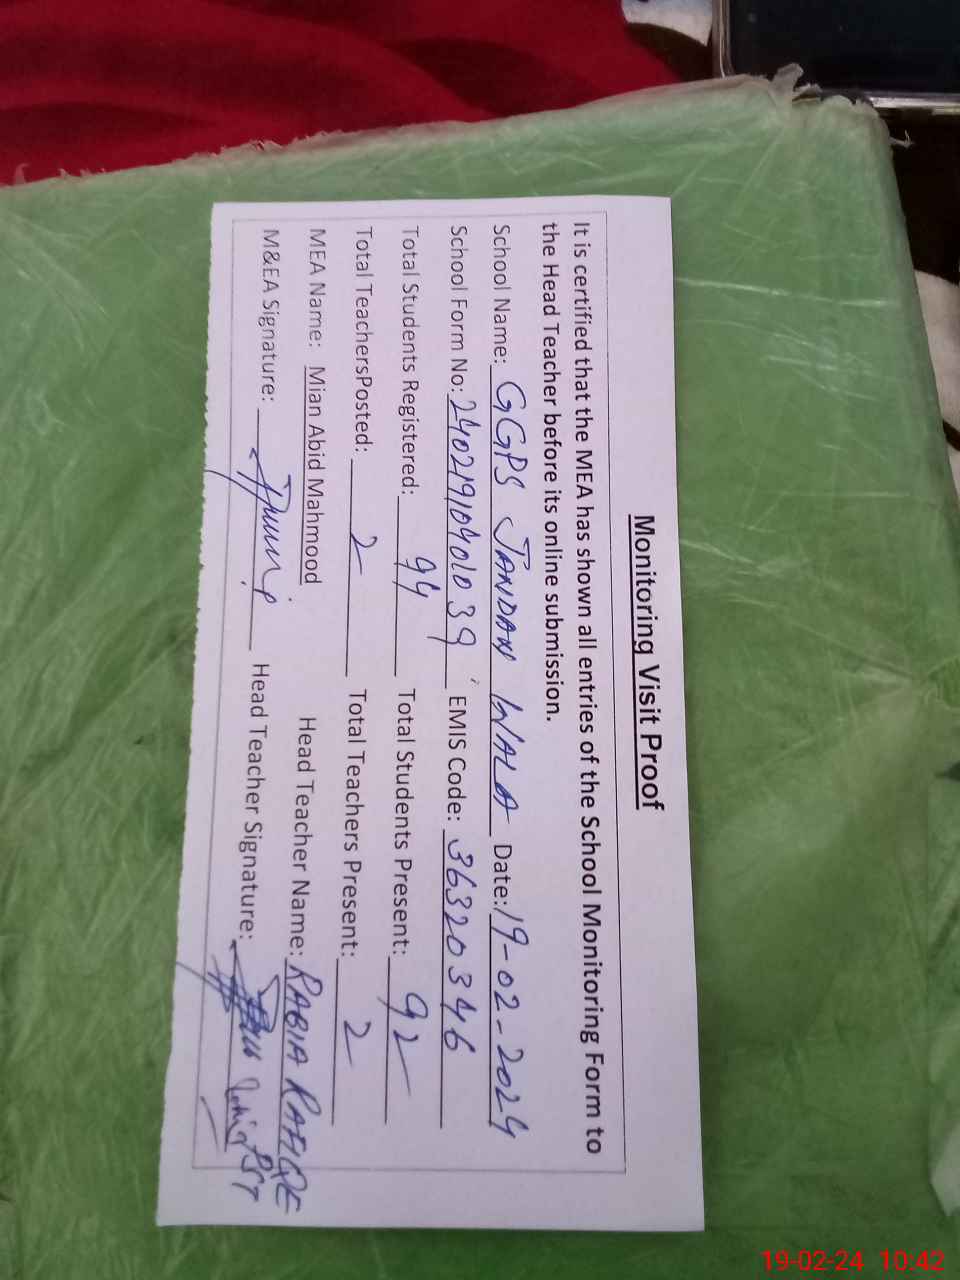 Monitoring Visit Proof
It is certified that the MEA has shown all entries of the School Monitoring Form to
the Head Teacher before its online submission.
School Name: GGPS JANDAN WALA Date: 19-02-2024
School Form No: 24021910401039 EMIS Code: 36320346
Total Students Registered: 94 Total Students Present: 92
Total TeachersPosted: 2 Total Teachers Present: 2
MEA Name: Mian Abid Mahmood Head Teacher Name: RABIA RAFIQE
M&EA Signature: Head Teacher Signature: PST
19-02-24 10:42